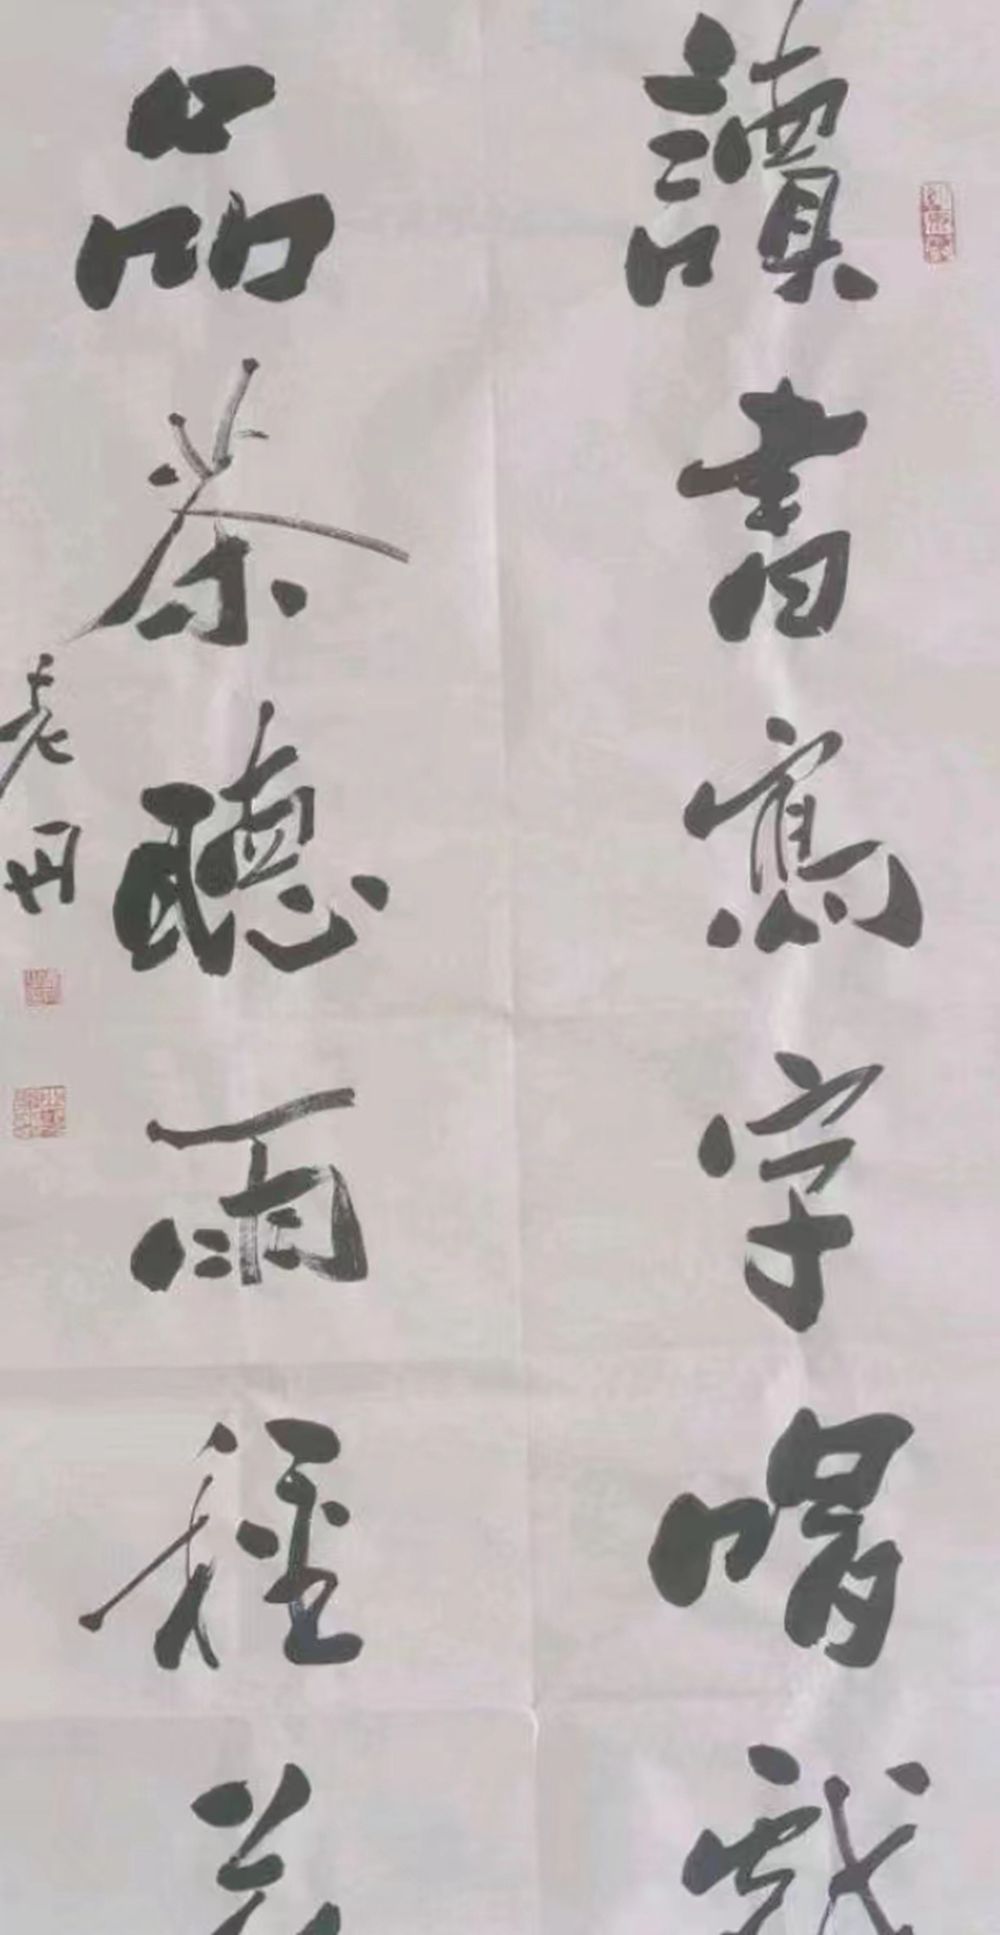 讀書寫字唱戲
品茶聽雨種花
老丑